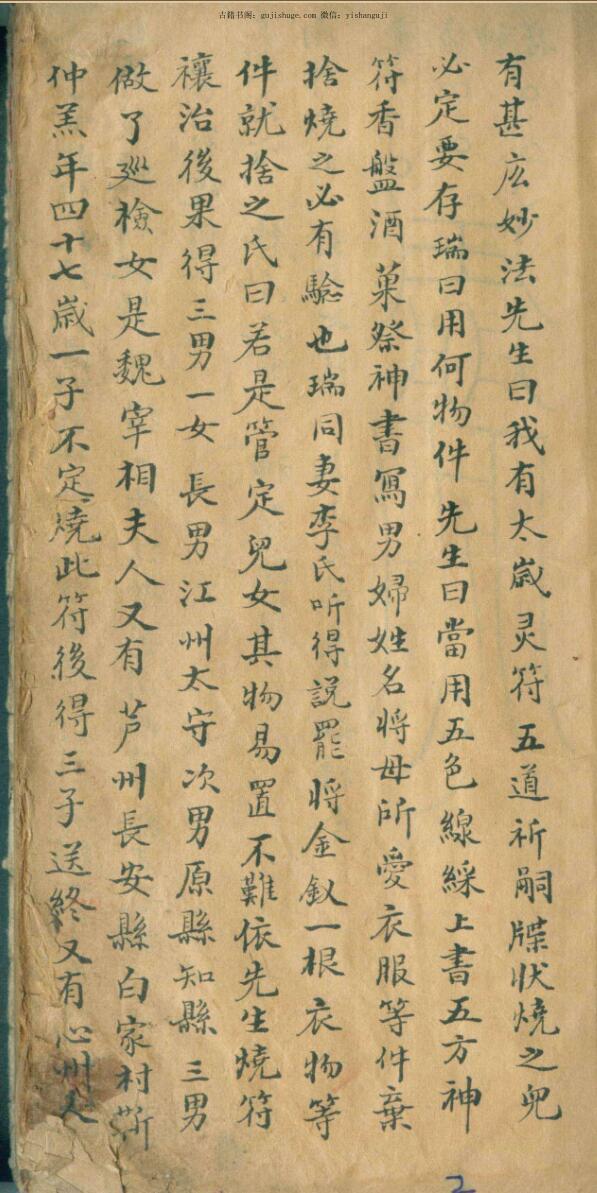 古籍书阁：gujishuge.com 微信：yishanguji
有甚庅妙法先生曰我有太歲灵符五道祈嗣牒状燒之兒
必定要存瑞曰用何物件先生曰當用五色線綵上書五方神
符香盤酒菓祭神書寫男婦姓名将母所愛衣服等件棄
捨燒之必有驗也瑞同妻李氏听得說罷将金釵一根衣物等
件就捨之氏曰若是管定兒女其物易置不難依先生燒符
禳治後果得三男一女長男江州太守次男原縣知縣三男
做了廵檢女是魏宰相夫人又有芦州長安縣白家村靳
仲羔年四十七歲一子不定燒此符後得三子送終又有心州人
2